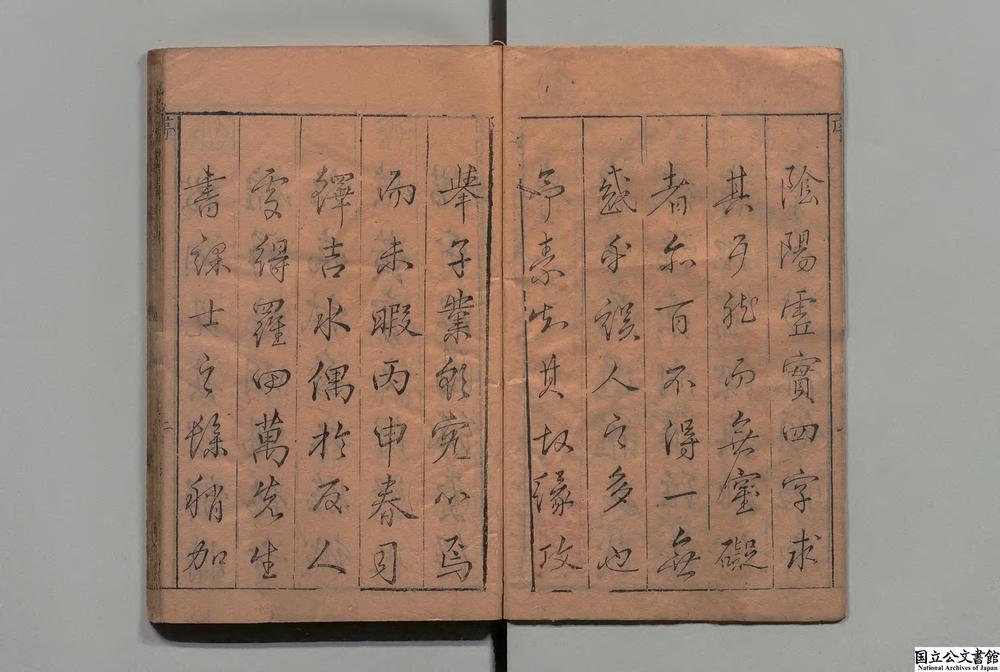 陰陽虛實四字求
其了然而無窒礙
者亦百不得一無
惑乎誤人之多也
予素知其故緣攻
舉子業欲究心焉
而未暇丙申春司
鐸吉水偶於友人
處得羅田萬先生
書課士之餘稍加
序
二
国立公文書館
National Archives of Japan